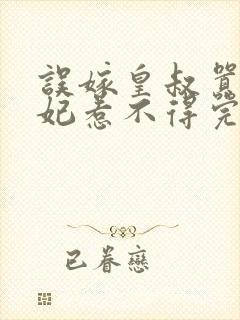 誤嫁皇叔
妃惹不得完
已眷戀